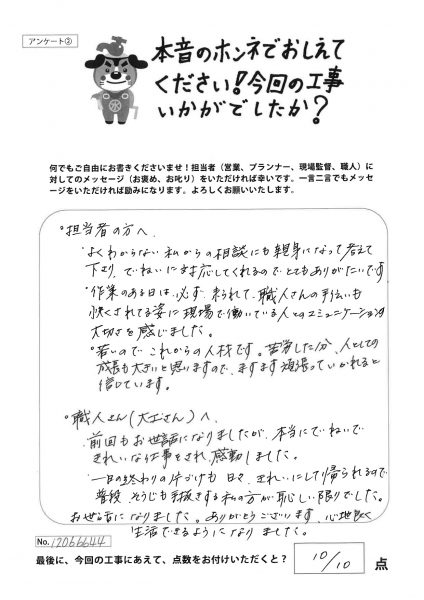 アンケート②
本音のホンネでおしえて
ください!今回の工事
いかがでしたか?
水
何でもご自由にお書きくださいませ!担当者(営業、プランナー、現場監督、職人)に
対してのメッセージ(お褒め、お叱り)をいただければ幸いです。一言二言でもメッセ
ージをいただければ励みになります。よろしくお願いいたします。
°担当者の方へ、
・よくわからない私からの相談にも親身になって考えて
下さり、ていねいに対応してくれるので、とてもありがたいです
・作業のある日は、必ず、来られて、職人さんの手伝いも
快くされてる姿に現場で働いている人とのコミュニケーションの
大切さを感じました。
・若いので これからの人材です。苦労した分、人としての
成長も大きいと思いますので、ますます頑張っていかれると
信じています。
°職人さん(大工さん)へ、
・前回もお世話になりましたが、本当にていねいで
きれいな仕事をされ、感動しました。
・一日の終わりの片づけも 日々、きれいにして帰られるので
普段、そうじも手抜きする私の方が恥しい限りでした。
お世話になりました。ありがとうございます。心地良く
生活できるようになりました。
No. 12066644
最後に、今回の工事にあえて、点数をお付けいただくと? 10/10 点